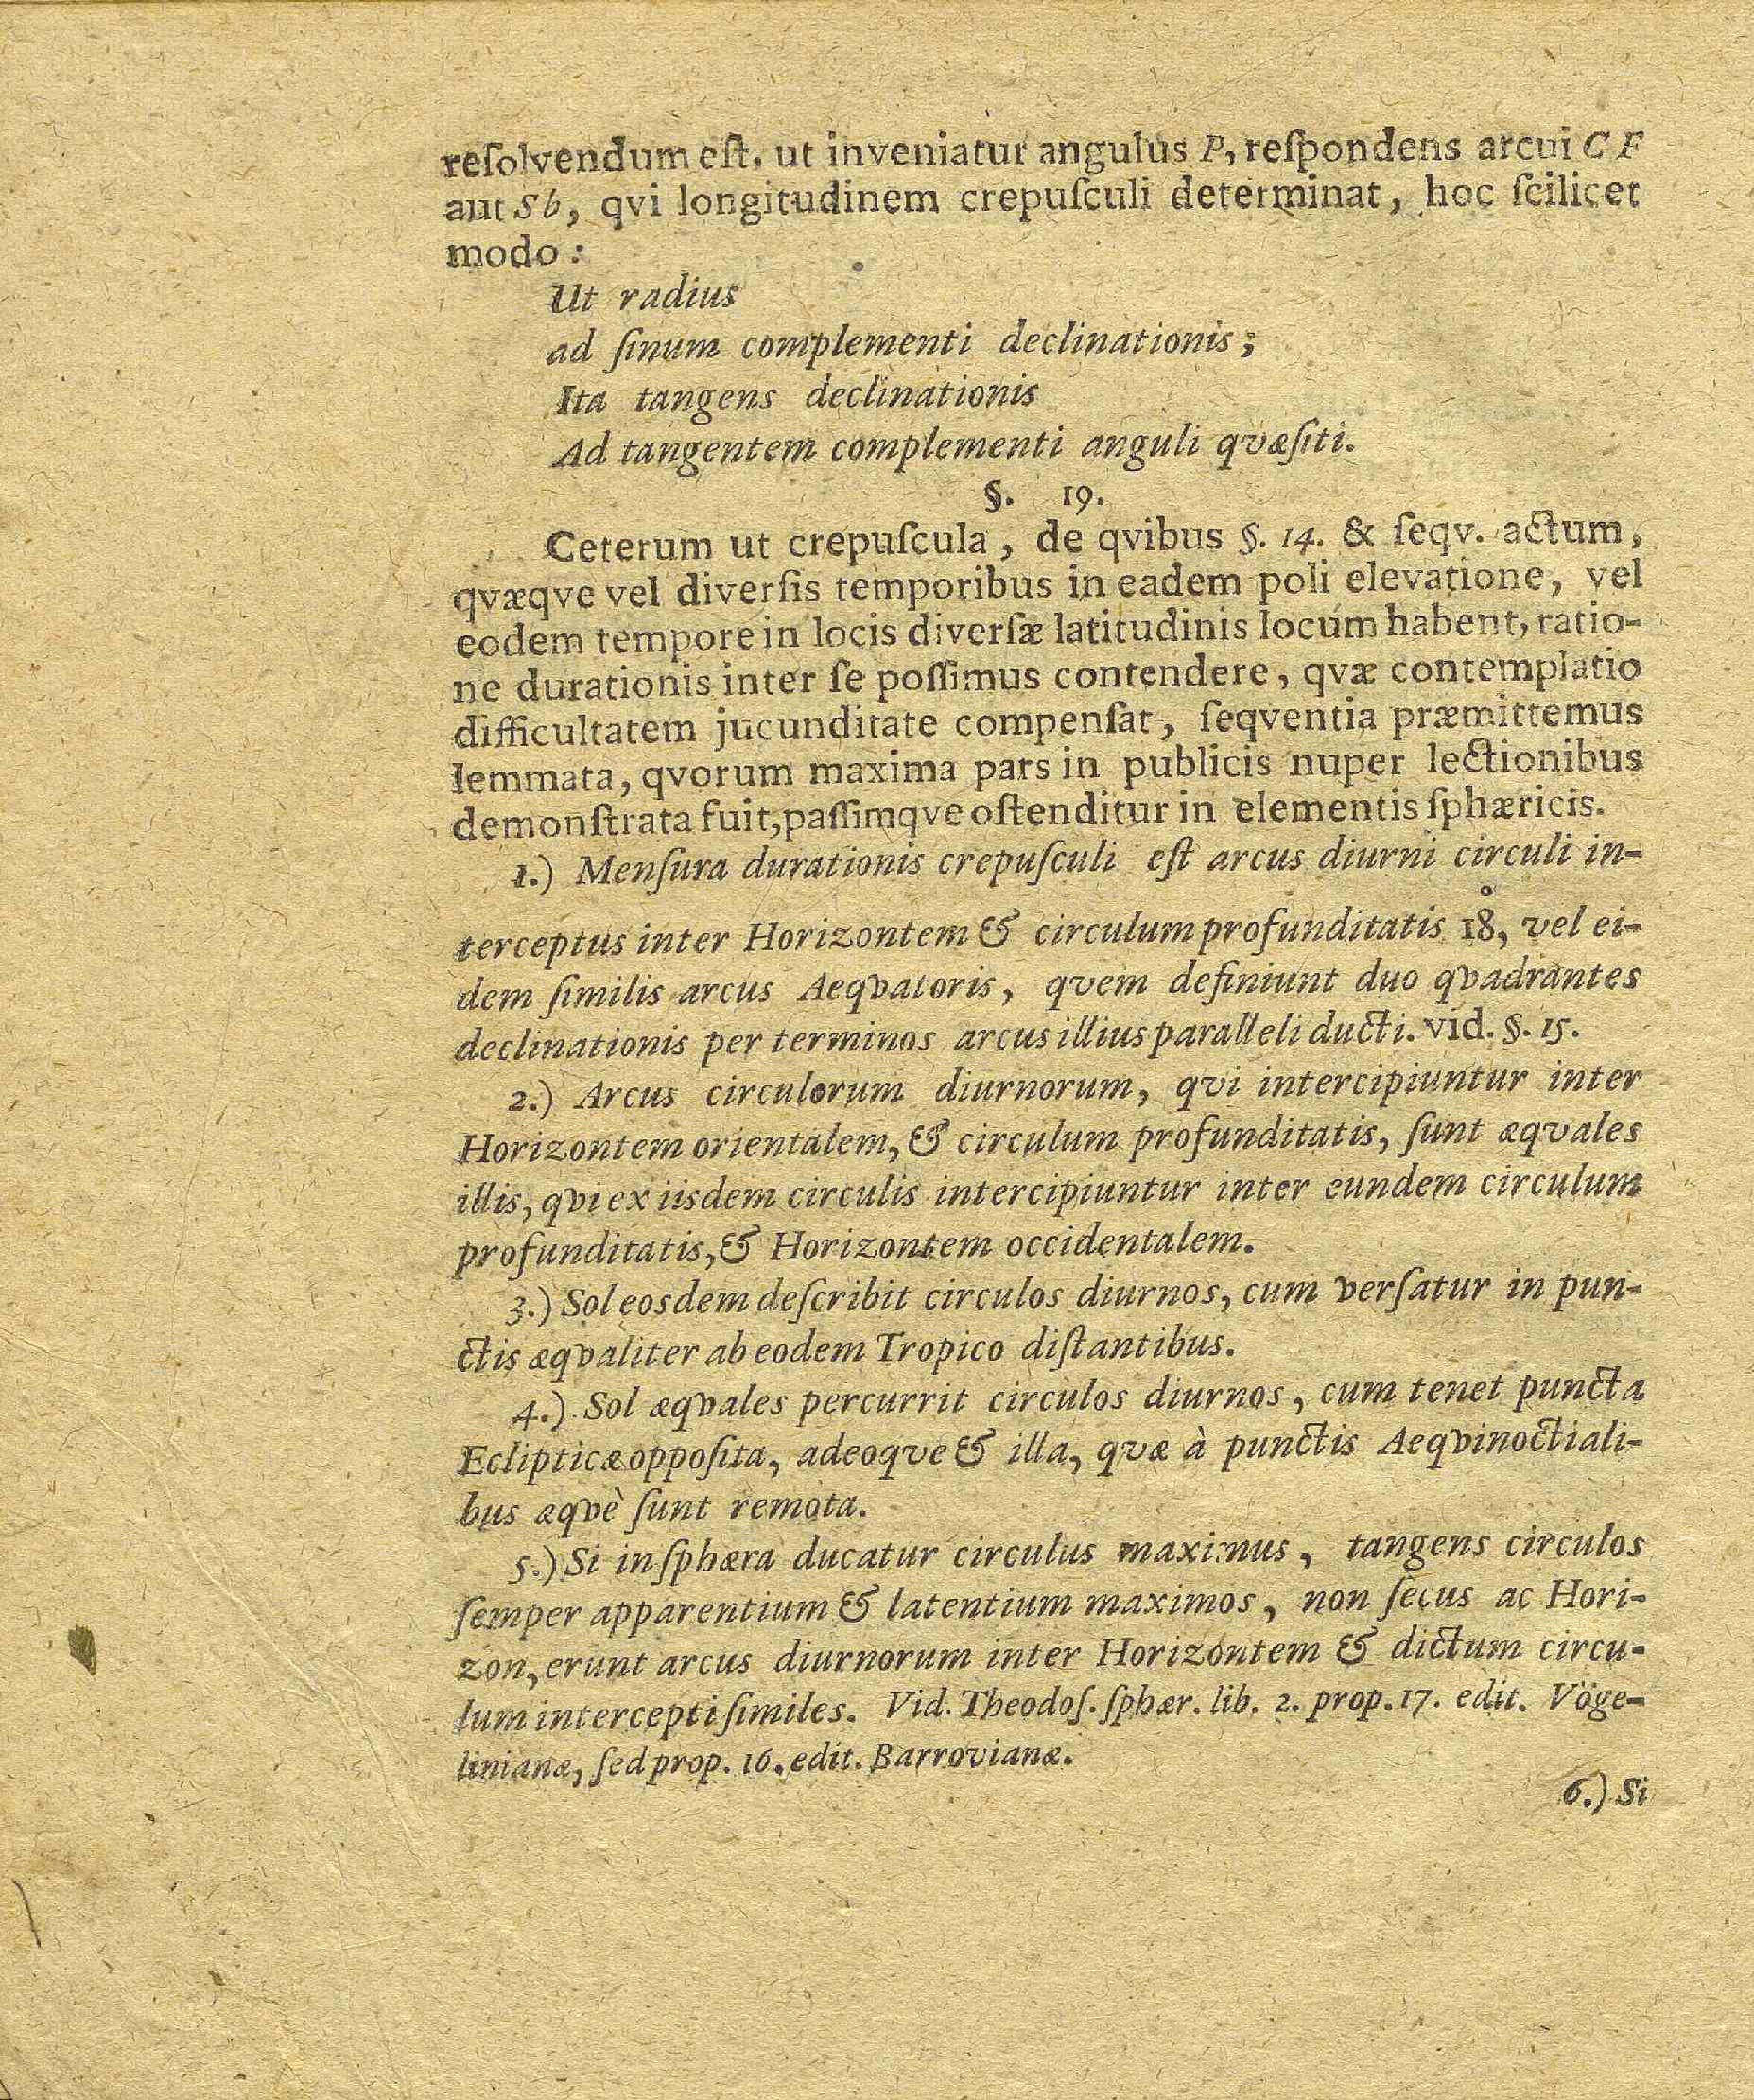 reſolvendum eſt, ut inveniatur angulus P, reſpondens arcui C F
aut Sb, qvi longitudinem crepuſculi determinat, hoc ſcilicet
modo:
Ut radius
ad ſinum complementi declinationis;
Ita tangens declinationis
Ad tangentem complementi anguli qvæſiti.
§. 19.
Ceterum ut crepuſcula, de qvibus §. 14. & ſeqv. actum,
qvæqve vel diverſis temporibus in eadem poli elevatione, vel
eodem tempore in locis diverſæ latitudinis locum habent, ratio-
ne durationis inter ſe poſſimus contendere, qvæ contemplatio
difficultatem jucunditate compenſat, ſeqventia præmittemus
lemmata, qvorum maxima pars in publicis nuper lectionibus
demonſtrata fuit, paſſimqve oſtenditur in elementis ſphæricis.
1.) Menſura durationis crepuſculi eſt arcus diurni circuli in-
terceptus inter Horizontem & circulum profunditatis 18°, vel ei-
dem ſimilis arcus Aeqvatoris, qvem definiunt duo qvadrantes
declinationis per terminos arcus illius paralleli ducti. vid. §. 15.
2.) Arcus circulorum diurnorum, qvi intercipiuntur inter
Horizontem orientalem, & circulum profunditatis, ſunt æqvales
illis, qvi ex iisdem circulis intercipiuntur inter eundem circulum
profunditatis, & Horizontem occidentalem.
3.) Sol eosdem deſcribit circulos diurnos, cum verſatur in pun-
ctis æqvaliter ab eodem Tropico diſtantibus.
4.) Sol æqvales percurrit circulos diurnos, cum tenet puncta
Eclipticæ oppoſita, adeoqve & illa, qvæ à punctis Aeqvinoctiali-
bus æqvè ſunt remota.
5.) Si in ſphæra ducatur circulus maximus, tangens circulos
ſemper apparentium & latentium maximos, non ſecus ac Hori-
zon, erunt arcus diurnorum inter Horizontem & dictum circu-
lum intercepti ſimiles. Vid. Theodoſ. ſphær. lib. 2. prop. 17. edit. Vöge-
linianæ, ſed prop. 16. edit. Barrovianæ.
6.) Si